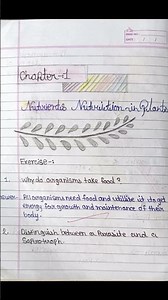 Chapter-1
Nutrients Nutrition in Plants
Exercise-1
1. Why do organisms take food?
Answer- All organisms need food and utilise it to get
energy for growth and maintenance of their
body.
2. Distinguish between a Parasite and a
Saprotroph.